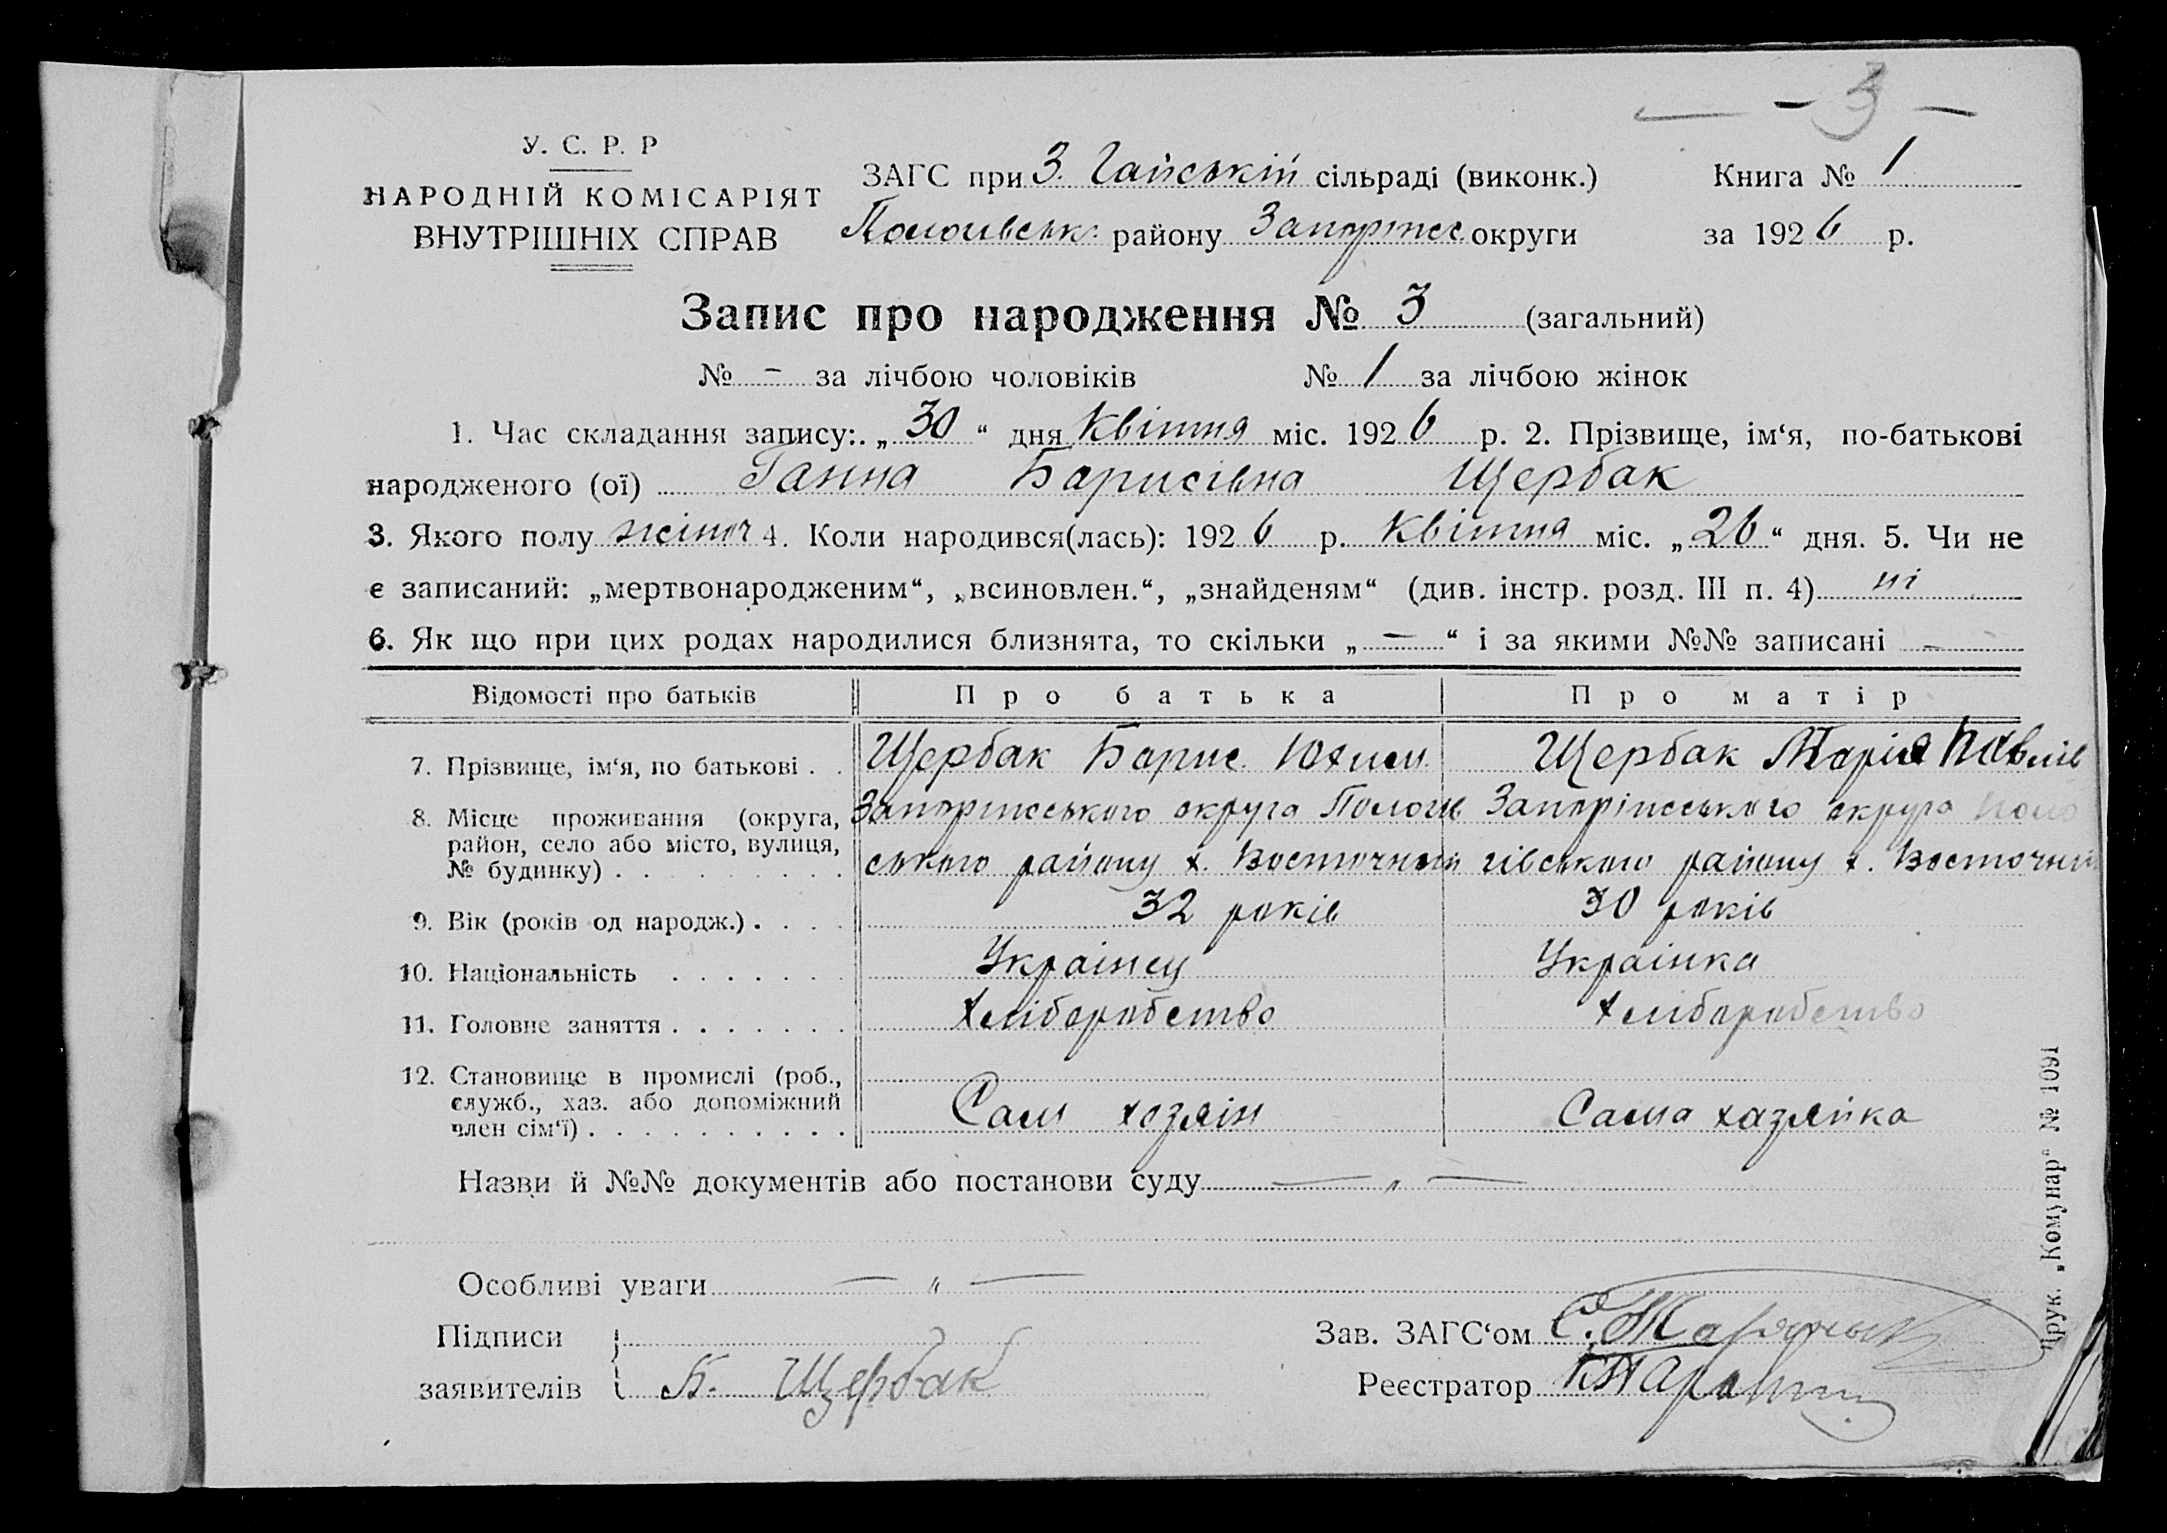 — - 3 —
У. С. Р. Р
НАРОДНІЙ КОМІСАРІЯТ
ВНУТРІШНІХ СПРАВ
ЗАГС при З. Гайській сільраді (виконк.) Книга № 1
Пологівськ. району Запоріжс округи за 1926 р.
Запис про народження № 3 (загальний)
№ - за лічбою чоловіків № 1 за лічбою жінок
1. Час складання запису: „30“ дня Квітня міс. 1926 р. 2. Прізвище, ім‘я, по-батькові
народженого (ої) Ганна Борисівна Щербак
3. Якого полу жіноч 4. Коли народився(лась): 1926 р. Квітня міс. „26“ дня. 5. Чи не
є записаний: „мертвонародженим“, „всиновлен.“, „знайденям“ (див. інстр. розд. III п. 4) ні
6. Як що при цих родах народилися близнята, то скільки „—“ і за якими №№ записані -
Відомості про батьків Про батька Про матір
7. Прізвище, ім‘я, по батькові . . Щербак Борис Юхим. Щербак Марія Павлів
8. Місце проживання (округа, район, село або місто, вулиця, № будинку) . . . . . . . . .
Запоріжського округа Пологів
ського району х. Восточний
Запоріжського округа Поло
гівського району х. Восточний
9. Вік (років од народж.) . . . . 32 років 30 років
10. Національність . . . . . . Українец Українка
11. Головне заняття . . . . . . . Хліборобство Хліборобство
12. Становище в промислі (роб., служб., хаз. або допоміжний член сім‘ї) . . . . . . . . . .
Сам хозяін Сама хазяйка
Назви й №№ документів або постанови суду — „ —
Особливі уваги — „ —
Підписи
заявителів Б. Щербак
Зав. ЗАГС‘ом
Реєстратор
Друк. „Комунар“ № 1091